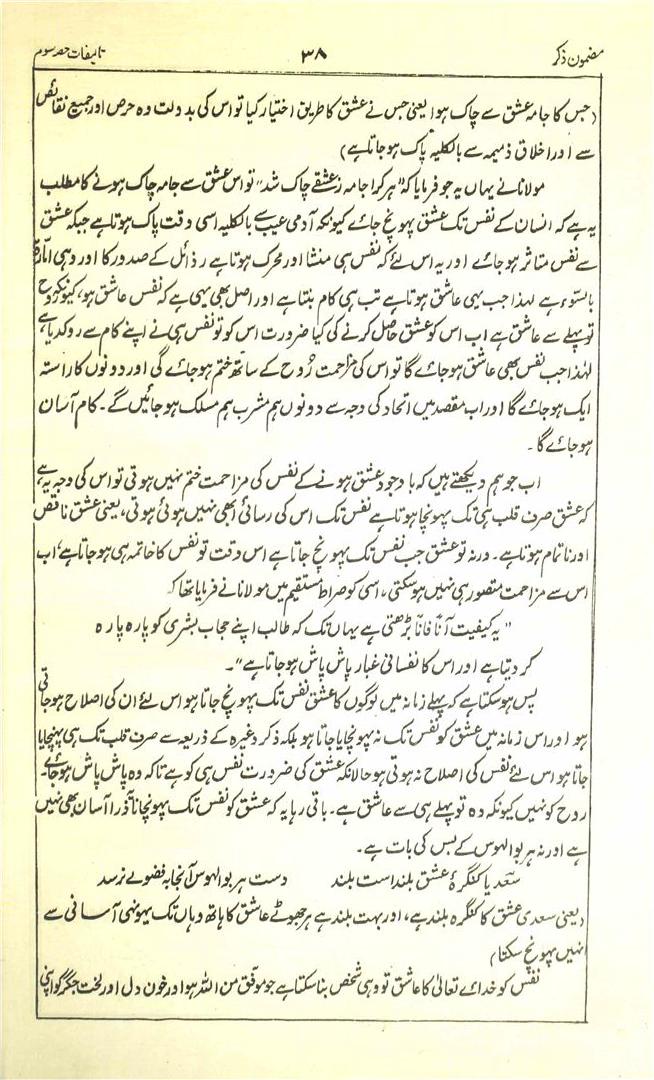 مضمون ذکر
۳۸
تالیفات حصہ سوم
(جس کا جامہ عشق سے چاک ہوا یعنی جس نے عشق کا طریق اختیار کیا تو اس کی بدولت وہ حرص اور جمیع نقائص
سے اور اخلاق ذمیمہ سے بالکلیہ پاک ہو جاتا ہے)
مولانا نے یہاں یہ جو فرمایا کہ "ہر کرا جامہ ز عشقے چاک شد" تو اس عشق سے جامہ چاک ہونے کا مطلب
یہ ہے کہ انسان کے نفس تک عشق پہونچ جائے کیونکہ آدمی عیب سے بالکلیہ اسی وقت پاک ہوتا ہے جبکہ عشق
سے نفس متاثر ہو جائے اور یہ اس لئے کہ نفس ہی منشا اور محرک ہوتا ہے رذائل کے صدور کا اور وہی امّارۃ
بالسّوء ہے لہذا جب یہی عاشق ہوتا ہے تب ہی کام بنتا ہے اور اصل بھی یہی ہے کہ نفس عاشق ہو، کیونکہ روح
تو پہلے سے عاشق ہے اب اس کو عشق حاصل کرنے کی کیا ضرورت اس کو تو نفس ہی نے اپنے کام سے روکدیا ہے،
لہٰذا جب نفس بھی عاشق ہو جائے گا تو اس کی مزاحمت رُوح کے ساتھ ختم ہو جائے گی اور دونوں کا راستہ
ایک ہو جائے گا اور اب مقصد میں اتحاد کی وجہ سے دونوں ہم مشرب ہم مسلک ہو جائیں گے۔ کام آسان
ہو جائے گا۔
اب جو ہم دیکھتے ہیں کہ باوجود عشق ہونے کے نفس کی مزاحمت ختم نہیں ہوتی تو اس کی وجہ یہ ہے
کہ عشق صرف قلب ہی تک پہونچا ہوتا ہے نفس تک اس کی رسائی ابھی نہیں ہوئی ہوتی، یعنی عشق ناقص
اور ناتمام ہوتا ہے۔ ورنہ تو عشق جب نفس تک پہونچ جاتا ہے اس وقت تو نفس کا خاتمہ ہی ہو جاتا ہے، اب
اس سے مزاحمت متصور ہی نہیں ہو سکتی، اسی کو صراط مستقیم میں مولانا نے فرمایا تھا کہ
"یہ کیفیت آناً فاناً بڑھتی ہے یہاں تک کہ طالب اپنے حجاب بشری کو پارہ پارہ
کر دیتا ہے اور اس کا نفسانی غبار پاش پاش ہو جاتا ہے"۔
پس ہو سکتا ہے کہ پہلے زمانہ میں لوگوں کا عشق نفس تک پہونچ جاتا ہو اس لئے ان کی اصلاح ہو جاتی
ہو اور اس زمانہ میں عشق کو نفس تک نہ پہونچایا جاتا ہو بلکہ ذکر وغیرہ کے ذریعہ سے صرف قلب تک ہی پہنچایا
جاتا ہو اس لئے نفس کی اصلاح نہ ہوتی ہو حالانکہ عشق کی ضرورت نفس ہی کو ہے تاکہ وہ پاش پاش ہو جائے۔
روح کو نہیں کیونکہ وہ تو پہلے ہی سے عاشق ہے۔ باقی رہا یہ کہ عشق کو نفس تک پہونچانا ذرا آسان بھی نہیں
ہے اور نہ ہر بوالہوس کے بس کی بات ہے۔
سعدیا کنگرۂ عشق بلند است بلند    دست ہر بوالہوس آنجا بہ فضولے نرسد
(یعنی سعدی عشق کا کنگرہ بلند ہے، اور بہت بلند ہے ہر جھوٹے عاشق کا ہاتھ وہاں تک یونہی آسانی سے
نہیں پہونچ سکتا)
نفس کو خدائے تعالیٰ کا عاشق تو وہی شخص بنا سکتا ہے جو موفق من اللہ ہو اور خون دل اور لخت جگر کو اپنی